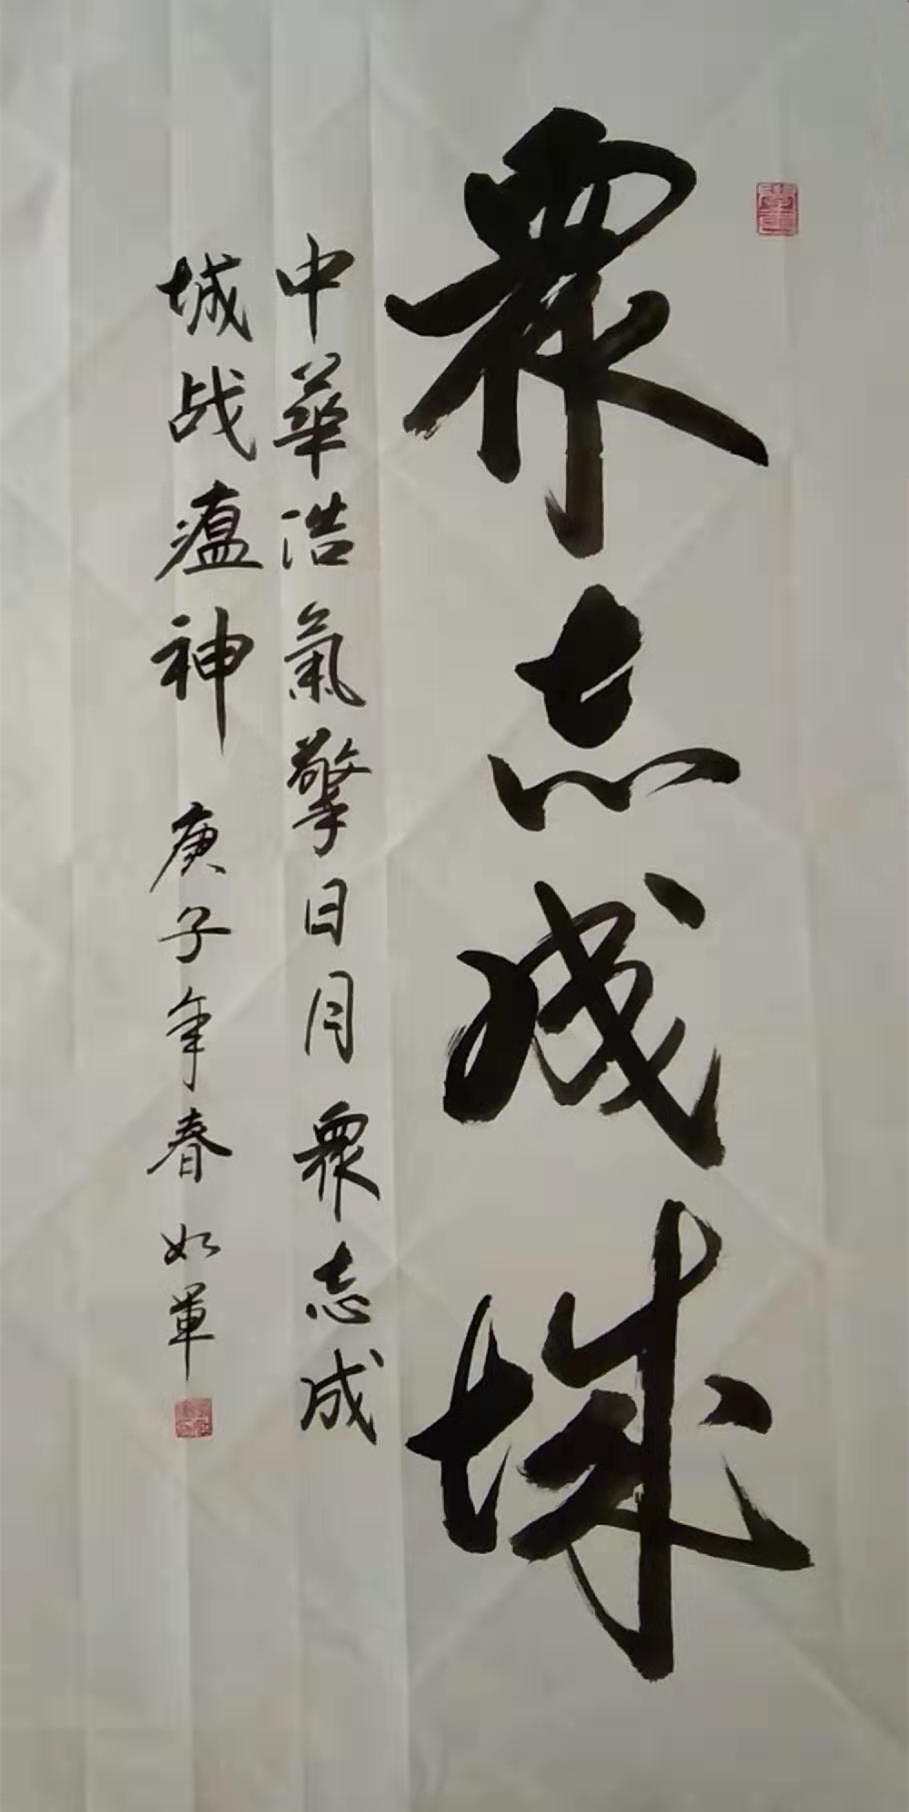 眾志成城
中華浩氣擎日月眾志成
城战瘟神 庚子年春 如軍